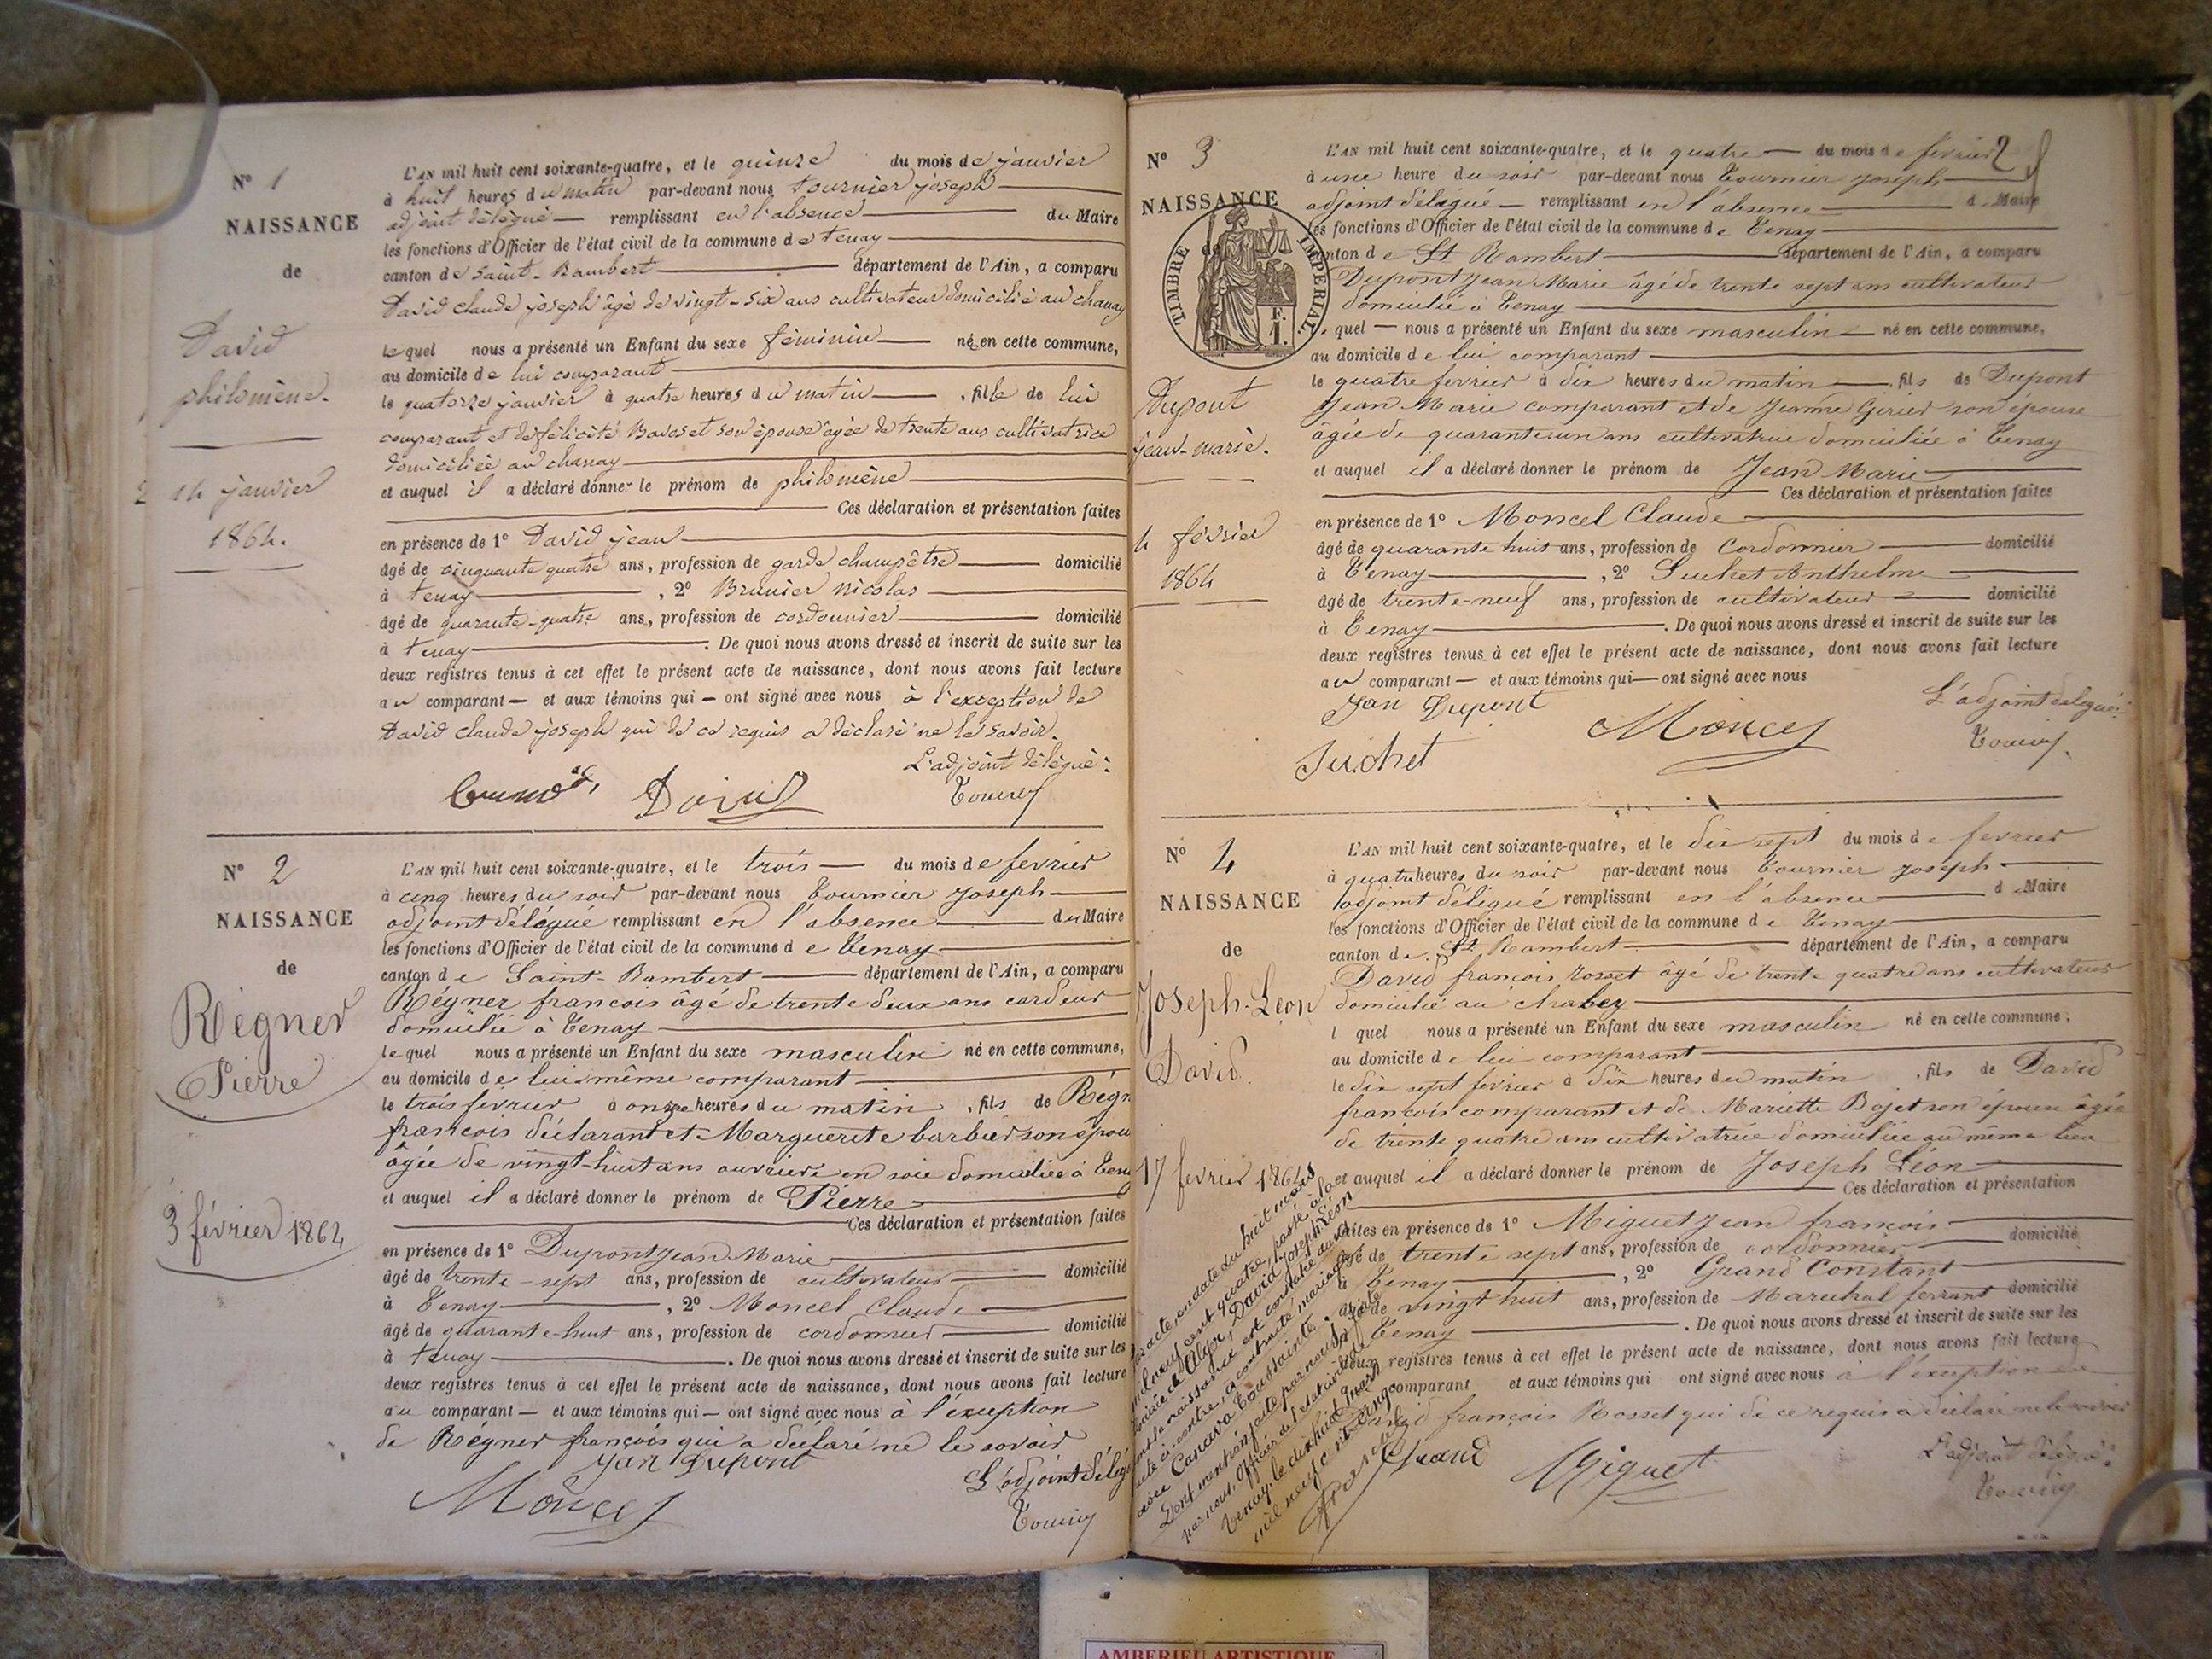 N° 1
NAISSANCE
de
David
philomène.
14 janvier
1864.
L'AN mil huit cent soixante-quatre, et le quinze du mois de janvier
à huit heures du matin par-devant nous tournier joseph
adjoint délégué remplissant en l'absence du Maire
les fonctions d'Officier de l'état civil de la commune de tenay
canton de saint-Rambert département de l'Ain, a comparu
David claude joseph âgé de vingt-six ans cultivateur domicilié au chanay
lequel nous a présenté un Enfant du sexe féminin née en cette commune,
au domicile de lui comparant
le quatorze janvier à quatre heures du matin, fille de lui
comparant et de félicité son épouse âgée de trente ans cultivatrice
domiciliée au chanay
et auquel il a déclaré donner le prénom de philomène
Ces déclaration et présentation faites
en présence de 1° David jean
âgé de cinquante quatre ans, profession de garde champêtre domicilié
à tenay, 2° Brunier nicolas
âgé de quarante-quatre ans, profession de cordonnier domicilié
à tenay. De quoi nous avons dressé et inscrit de suite sur les
deux registres tenus à cet effet le présent acte de naissance, dont nous avons fait lecture
au comparant et aux témoins qui ont signé avec nous à l'exception de
David claude joseph qui de ce requis a déclaré ne le savoir.
L'adjoint délégué:
David
N° 2
NAISSANCE
de
Régner
Pierre
3 février 1864
L'AN mil huit cent soixante-quatre, et le trois du mois de fevrier
à cinq heures du soir par-devant nous Tournier Joseph
adjoint délégué remplissant en l'absence du Maire
les fonctions d'Officier de l'état civil de la commune de Tenay
canton de Saint-Rambert département de l'Ain, a comparu
Régner francois âgé de trente deux ans cardeur
domicilié à Tenay
lequel nous a présenté un Enfant du sexe masculin né en cette commune,
au domicile de lui même comparant
le trois fevrier à onze heures du matin, fils de Régn
francois déclarant et Marguerite barbier son épou
âgée de vingt-huit ans ouvrière en soie domiciliée à Tenay
et auquel il a déclaré donner le prénom de Pierre
Ces déclaration et présentation faites
en présence de 1° Dupont Jean Marie
âgé de trente-sept ans, profession de cultivateur domicilié
à Tenay, 2° Moncel Claude
âgé de quarante-huit ans, profession de cordonnier domicilié
à tenay. De quoi nous avons dressé et inscrit de suite sur les
deux registres tenus à cet effet le présent acte de naissance, dont nous avons fait lecture
au comparant et aux témoins qui ont signé avec nous à l'exception
de Régner françois qui a déclaré ne le savoir
Jan Dupont
L'adjoint délég
Moncel
N° 3
NAISSANCE
de
TIMBRE IMPERIAL.
F.
1.
Dupont
jean-marie.
4 février
1864
2
L'AN mil huit cent soixante-quatre, et le quatre du mois de fevrier
à une heure du soir par-devant nous Tournier Joseph
adjoint délégué remplissant en l'absence d Maire
les fonctions d'Officier de l'état civil de la commune de Tenay
canton de St Rambert département de l'Ain, a comparu
Dupont Jean Marie âgé de trente sept ans cultivateur
domicilié à Tenay
quel nous a présenté un Enfant du sexe masculin né en cette commune,
au domicile de lui comparant
le quatre fevrier à dix heures du matin, fils de Dupont
Jean Marie comparant et de Jeanne Girier son épouse
âgée de quarante un ans cultivatrice domiciliée à Tenay
et auquel il a déclaré donner le prénom de Jean Marie
Ces déclaration et présentation faites
en présence de 1° Moncel Claude
âgé de quarante huit ans, profession de Cordonnier domicilié
à Tenay, 2° Suchet Anthelme
âgé de trente-neuf ans, profession de cultivateur domicilié
à Tenay. De quoi nous avons dressé et inscrit de suite sur les
deux registres tenus à cet effet le présent acte de naissance, dont nous avons fait lecture
au comparant et aux témoins qui ont signé avec nous
Jan Dupont
L'adjoint délégué:
Moncel
Suchet
N° 4
NAISSANCE
de
Joseph-Léon
David.
17 fevrier 1864
L'AN mil huit cent soixante-quatre, et le dix sept du mois de fevrier
à quatre heures du soir par-devant nous Tournier Joseph
adjoint délégué remplissant en l'absence d Maire
les fonctions d'Officier de l'état civil de la commune de Tenay
canton de St Rambert département de l'Ain, a comparu
David françois rosset âgé de trente quatre ans cultivateur
domicilié au
l quel nous a présenté un Enfant du sexe masculin né en cette commune,
au domicile de lui comparant
le dix sept fevrier à dix heures du matin, fils de David
francois comparant et de Mariette Bojet son épouse âgée
de trente quatre ans cultivatrice domiciliée au même lieu
et auquel il a déclaré donner le prénom de Joseph Léon
Ces déclaration et présentation
faites en présence de 1° Miguet Jean françois
âgé de trente sept ans, profession de cordonnier domicilié
à Tenay, 2° Grand Constant
âgé de vingt huit ans, profession de Marechal ferrant domicilié
à Tenay. De quoi nous avons dressé et inscrit de suite sur les
deux registres tenus à cet effet le présent acte de naissance, dont nous avons fait lecture
comparant et aux témoins qui ont signé avec nous à l'exception de
David françois Rosset qui de ce requis a déclaré ne le savoir
L'adjoint délégué:
Grand
Miguet
acte, en date du huit mars
mil neuf cent quatre, passé à la
mairie d'Alger, David Joseph Léon
dont la naissance est constatée dans
acte ci-contre, a contracté mariage
avec Canava Toussainte.
Dont mention faite par nous
par nous, officier de l'état civil de
Tenay, le dix huit mars
mil neuf cent
AMBERIEU ARTISTIQUE